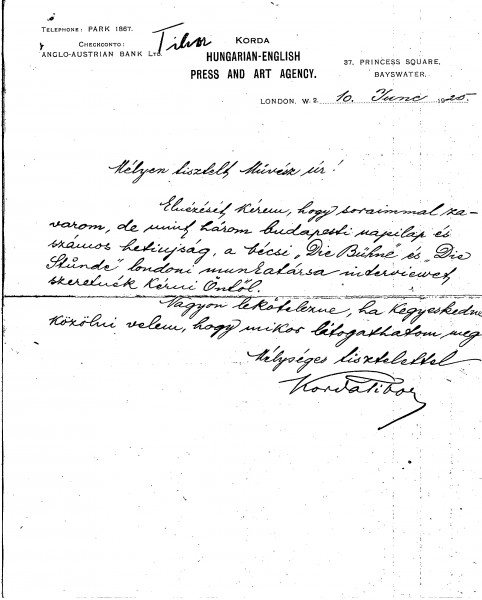 TELEPHONE: PARK 1867.
CHECKCONTO:
ANGLO-AUSTRIAN BANK LTD.
Tibor
KORDA
HUNGARIAN-ENGLISH
PRESS AND ART AGENCY.
37, PRINCESS SQUARE,
BAYSWATER.
LONDON, W.2. 10. June 1925.
Mélyen tisztelt Művész úr!
Elnézését kérem, hogy soraimmal za-
varom, de mint három budapesti napilap és
számos hetiujság, a bécsi „Die Bühne" és „Die
Stunde" londoni munkatársa interviewet
szeretnék kérni Öntől.
Nagyon lekötelezne, ha kegyeskedne
közölni velem, hogy mikor látogathatom meg
Mélységes tisztelettel
Korda Tibor